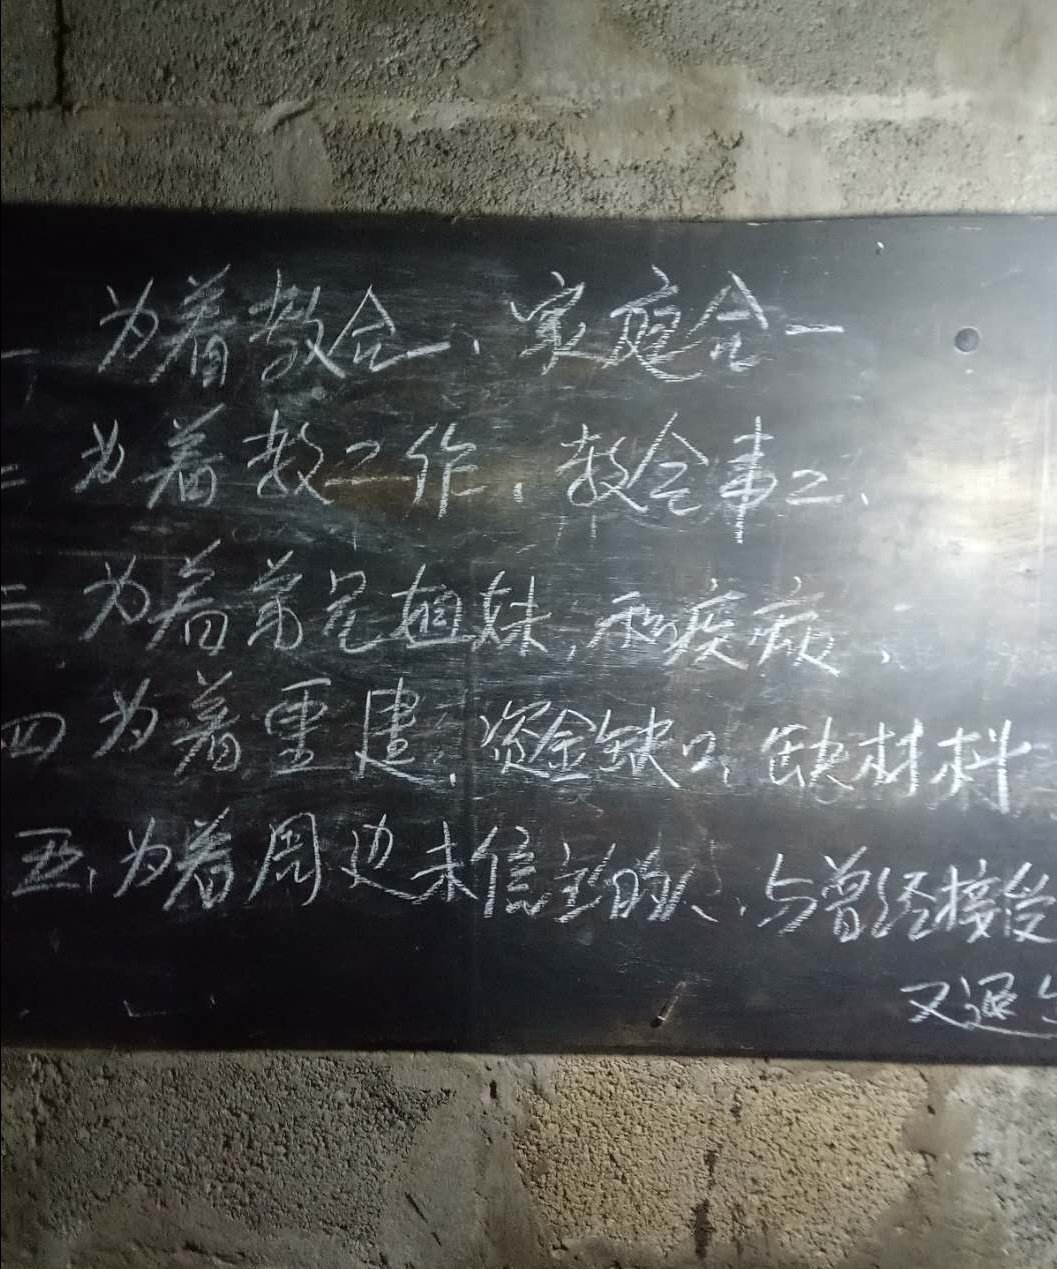 一 为着教合一、家庭合一
二 为着教工作、教会事工、
三 为着弟兄姐妹,和疾病、
四 为着重建、资金缺口,缺材料
五、为着周边未信主的人、与曾经接受
又退